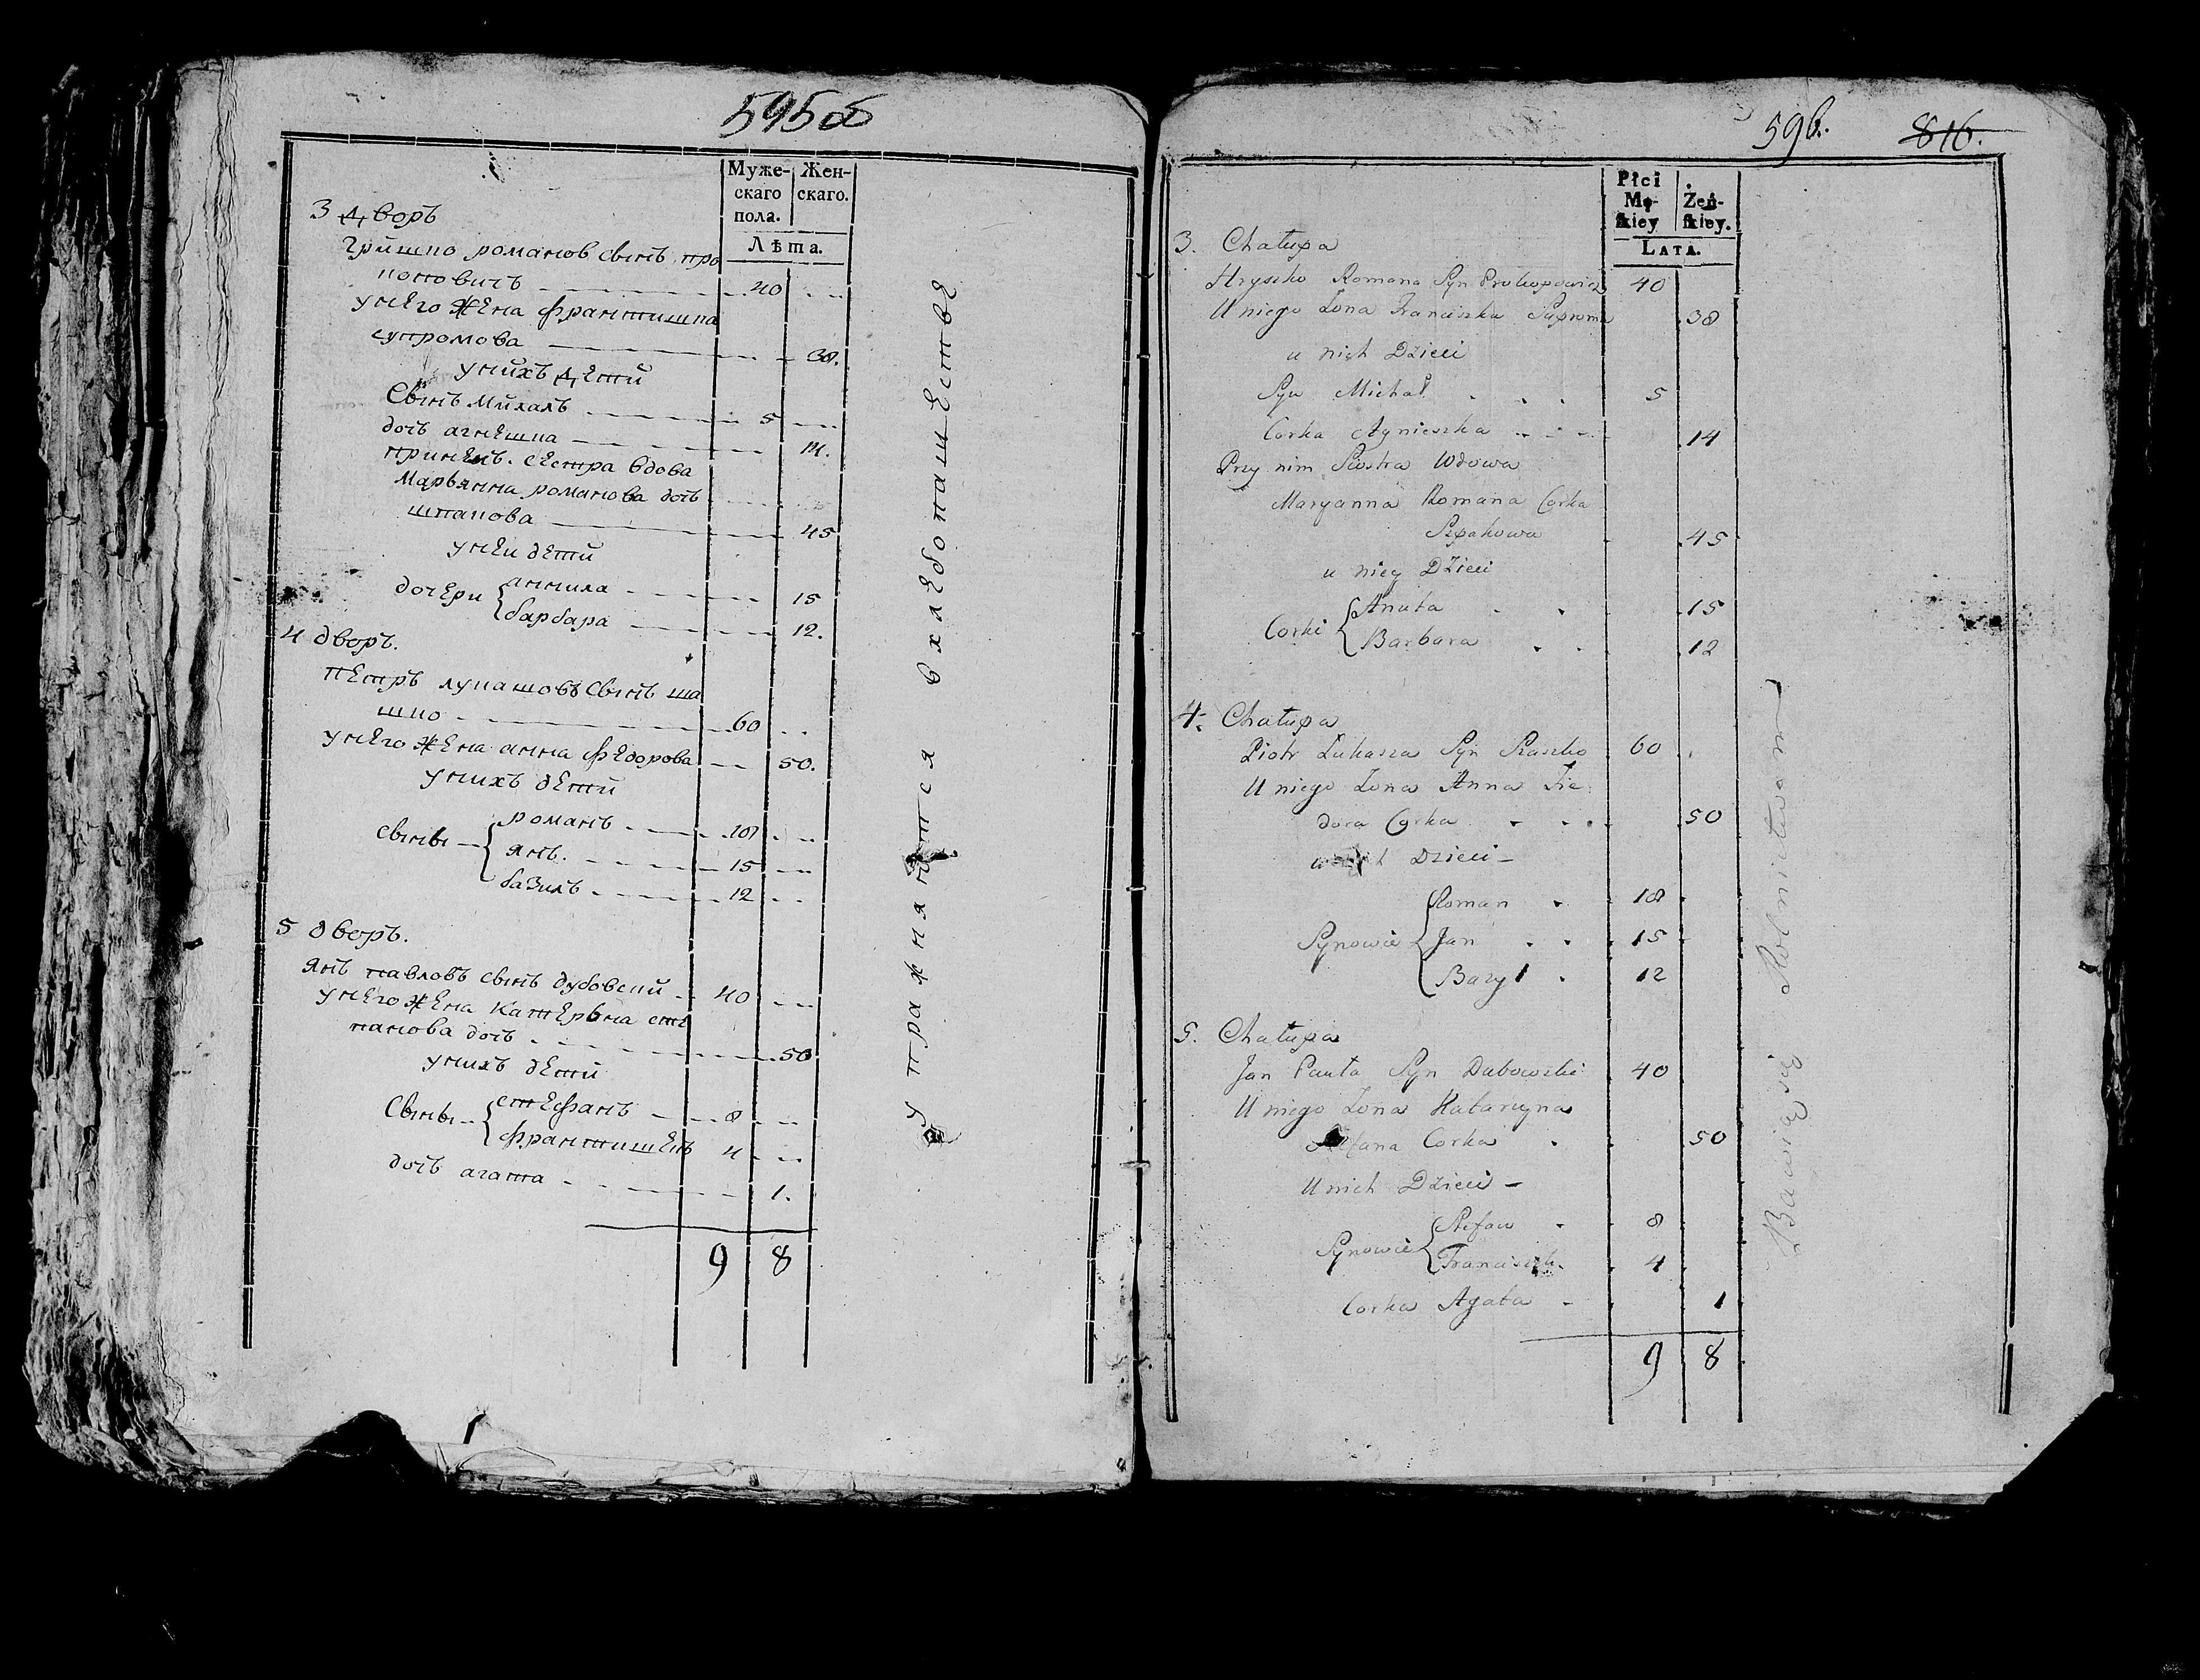 595об
Муже-
скаго
пола.
Жен-
скаго.
Лѣта.
3 дворъ
Гришко романов сынъ про
коповичъ 40
у него жена франтишка
супромова 38.
у нихъ дети
Сынъ михалъ 5
дочь агнешка 14.
при немъ сестра вдова
Марьянна романова дочь
шпакова 45
у неи дети
дочери { аннила 15
барбара 12.
4 дворъ.
петръ лукашовъ сынъ ша
шко 60
у него жена анна федорова 50.
у нихъ дети
сыны { романъ 18
янъ. 15
базиль 12
5 дворъ.
янъ павловъ сынъ дубовский 40
у него жена катерына сте
панова дочь 50
у нихъ дети
Сыны { стефанъ 8
франтишекъ 4
дочь агата 1.
9 8
упражняются в хлебопашестве
596.
816.
Płci
Mę-
skiey
Żeń-
skiey.
LATA.
3. Chałupa
Hryszko Romana Syn Prokopowicz 40
U niego Żona Franciszka Suproma 38
u nich Dzieci
Syn Michał 5
Corka Agnieszka 14
Przy nim Siostra Wdowa
Maryanna Romana Corka
Szpakowa 45
u niey Dzieci
Corki { Anuta 15
Barbara 12
4. Chałupa
Piotr Łukasza Syn Szaszko 60
U niego Żona Anna Fie
dora Corka 50
u nich Dzieci
Synowie { Roman 18
Jan 15
Bazyl 12
5. Chałupa
Jan Pauła Syn Dubowski 40
U niego Żona Katarzyna
Stefana Corka 50
U nich Dzieci
Synowie { Stefan 8
Franciszek 4
Corka Agata 1
9 8
Bawią się Rolnictwem